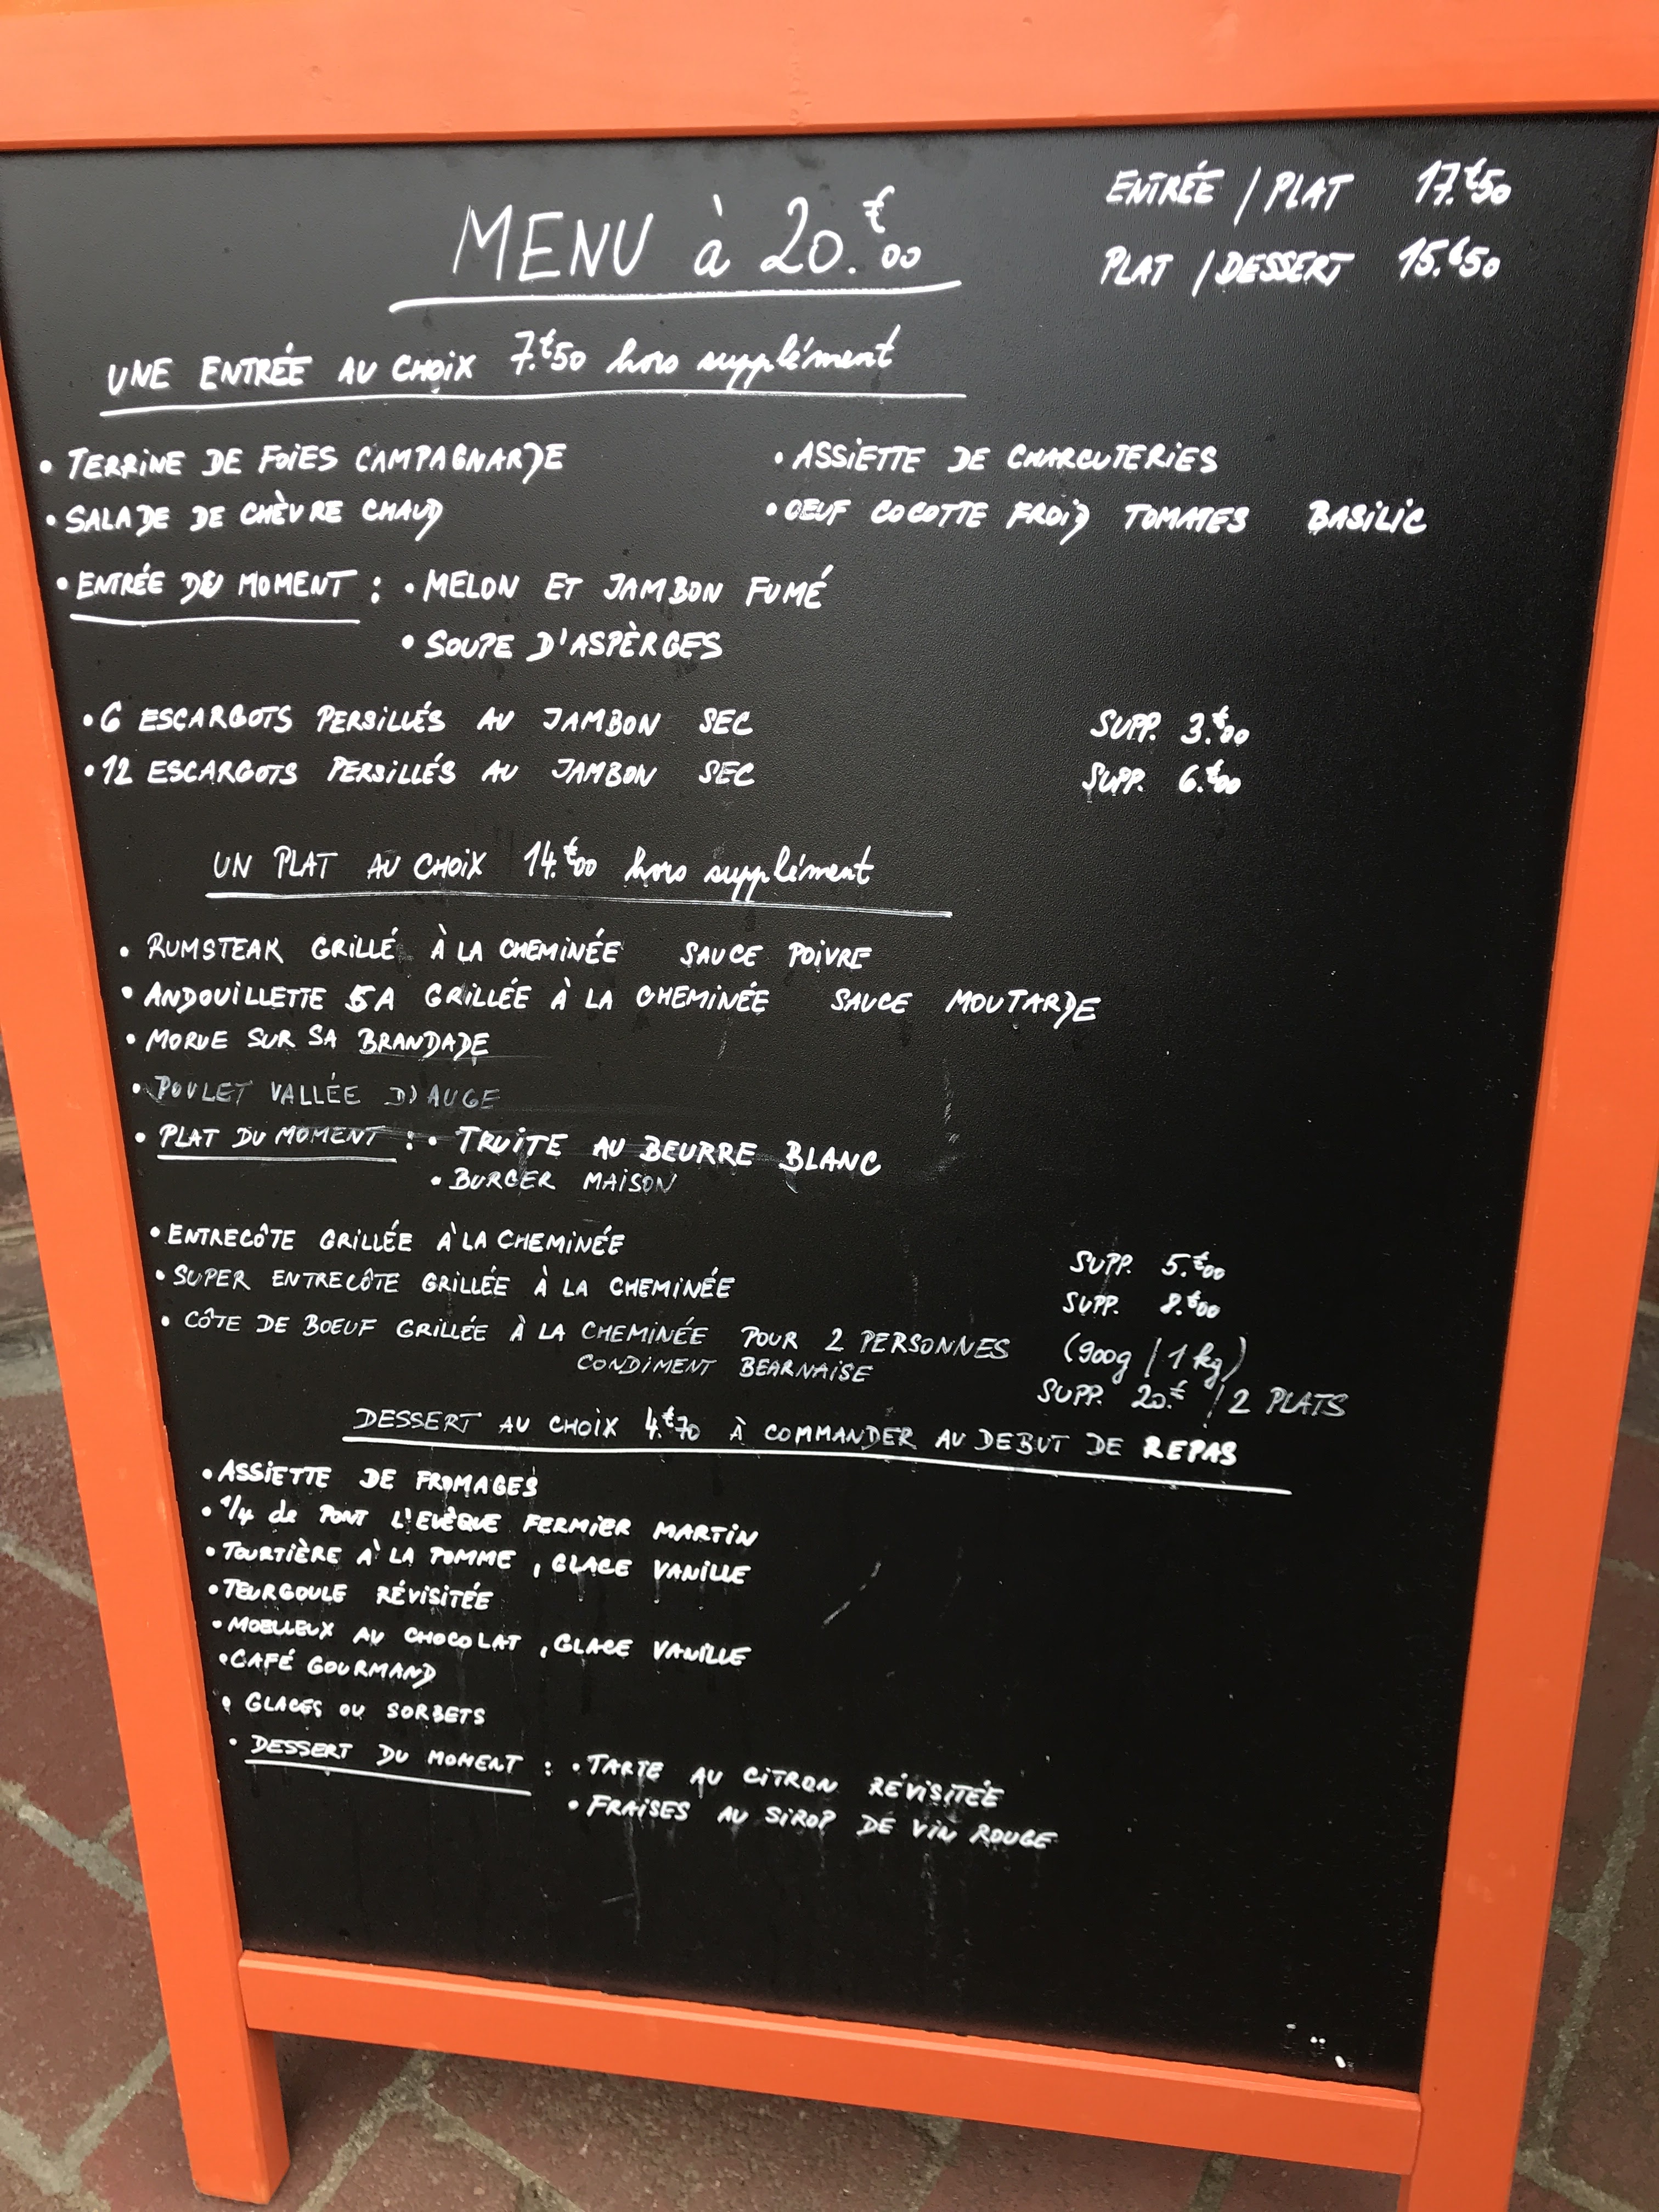 MENU à 20.€00
ENTRÉE / PLAT 17.€50
PLAT / DESSERT 15.€50
UNE ENTRÉE AU CHOIX 7.€50 hors supplément
• TERRINE DE FOIES CAMPAGNARDE • ASSIETTE DE CHARCUTERIES
• SALADE DE CHÈVRE CHAUD • OEUF COCOTTE FROID TOMATES BASILIC
• ENTRÉE DU MOMENT : • MELON ET JAMBON FUMÉ
• SOUPE D'ASPÈRGES
• 6 ESCARGOTS PERSILLÉS AU JAMBON SEC SUPP. 3.€00
• 12 ESCARGOTS PERSILLÉS AU JAMBON SEC SUPP. 6.€00
UN PLAT AU CHOIX 14.€00 hors supplément
• RUMSTEAK GRILLÉ À LA CHEMINÉE SAUCE POIVRE
• ANDOUILLETTE 5A GRILLÉE À LA CHEMINÉE SAUCE MOUTARDE
• MORUE SUR SA BRANDADE
• POULET VALLÉE D'AUGE
• PLAT DU MOMENT : • TRUITE AU BEURRE BLANC
• BURGER MAISON
• ENTRECÔTE GRILLÉE À LA CHEMINÉE SUPP. 5.€00
• SUPER ENTRECÔTE GRILLÉE À LA CHEMINÉE SUPP. 8.€00
• CÔTE DE BOEUF GRILLÉE À LA CHEMINÉE POUR 2 PERSONNES (900g / 1 kg)
CONDIMENT BEARNAISE SUPP. 20.€ / 2 PLATS
DESSERT AU CHOIX 4.€70 À COMMANDER AU DEBUT DE REPAS
• ASSIETTE DE FROMAGES
• 1/4 de PONT L'EVÈQUE FERMIER MARTIN
• TOURTIÈRE À LA POMME, GLACE VANILLE
• TEURGOULE RÉVISITÉE
• MOELLEUX AU CHOCOLAT, GLACE VANILLE
• CAFÉ GOURMAND
• GLACES OU SORBETS
• DESSERT DU MOMENT : • TARTE AU CITRON RÉVISITÉE
• FRAISES AU SIROP DE VIN ROUGE